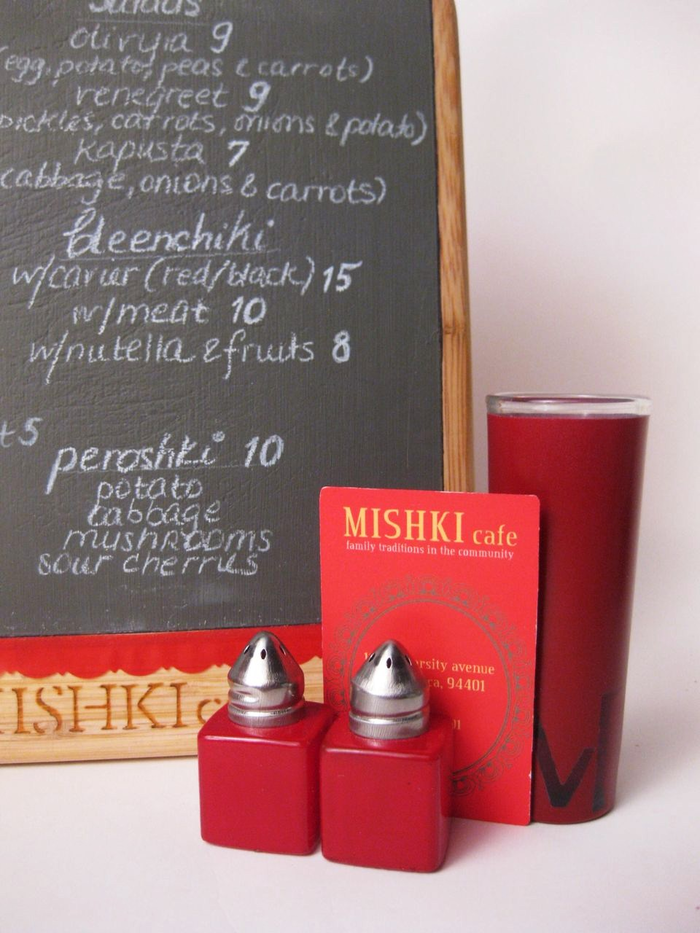 Salads
olivyia 9
(egg, potato, peas & carrots)
venegreet 9
pickles, carrots, onions & potato)
kapusta 7
(cabbage, onions & carrots)
bleenchiki
w/caviar (red/black) 15
w/meat 10
w/nutella & fruits 8
5
peroshki 10
potato
cabbage
mushrooms
sour cherries
MISHKI
MISHKI cafe
family traditions in the community
avenue
94401
M